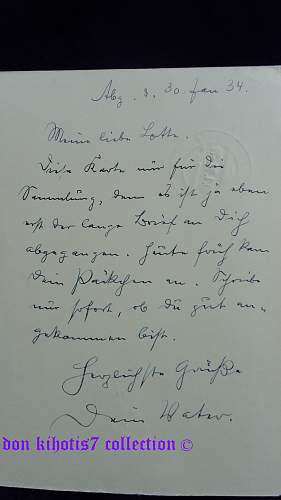 Abg. d. 30. Jan 34.
Meine liebe Lotte.
Diese Karte nur für die
Sammlung, denn es ist ja eben
erst der lange Brief an Dich
abgegangen. Heute früh kam
Dein Päckchen an. Schreib
nur sofort, ob Du gut an-
gekommen bist.
Herzlichste Grüße
Dein Vater.
don kihotis7 collection ©